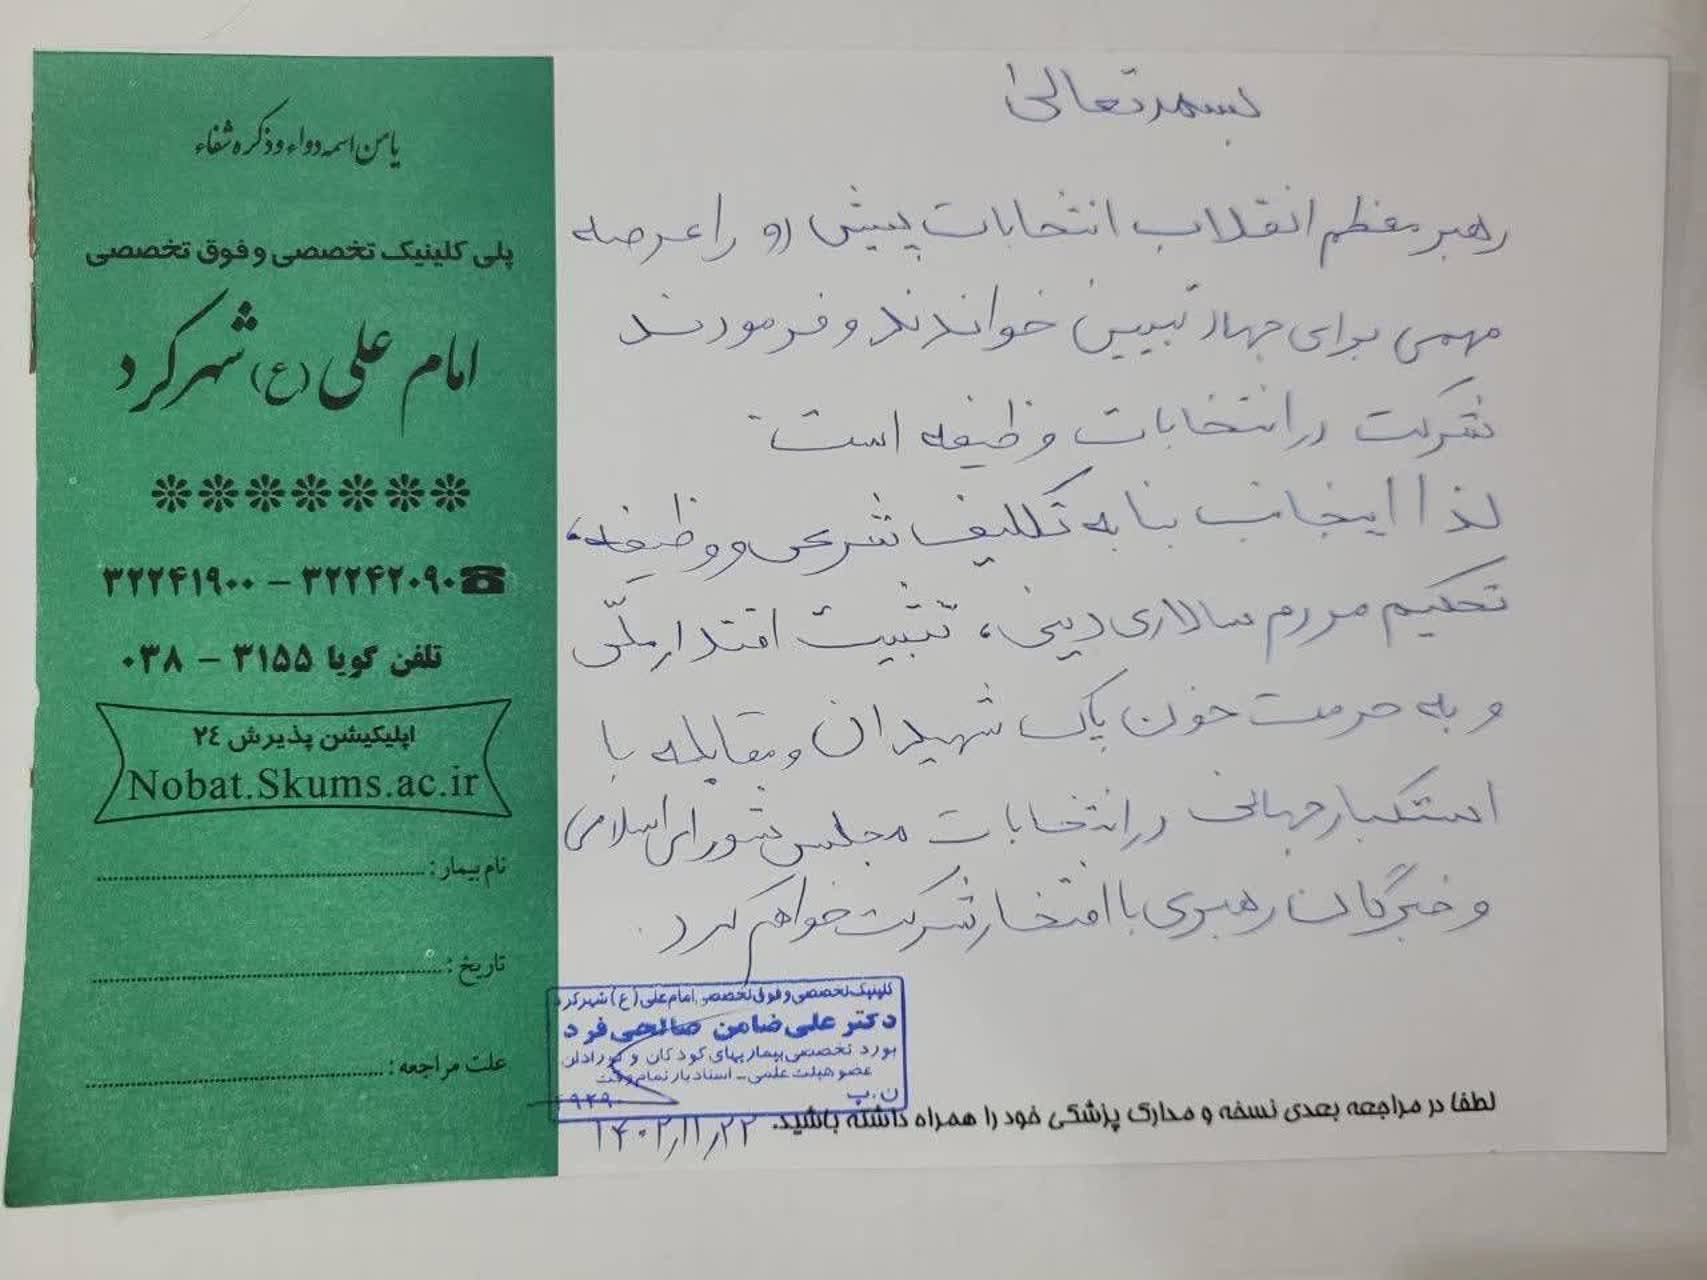 بسمه تعالی
رهبر معظم انقلاب انتخابات پیش رو را عرصه
مهمی برای جهاد تبیین خواندند و فرمودند
شرکت در انتخابات وظیفه است.
لذا اینجانب بنا به تکلیف شرعی و وظیفه،
تحکیم مردم سالاری دینی، تثبیت اقتدار ملّی
و به حرمت خون پاک شهیدان و مقابله با
استکبار جهانی در انتخابات مجلس شورای اسلامی
و خبرگان رهبری با افتخار شرکت خواهم کرد.
کلینیک تخصصی و فوق تخصصی امام علی (ع) شهرکرد
دکتر علی ضامن صالحی فرد
بورد تخصصی بیماریهای کودکان و نوزادان
عضو هیئت علمی - استادیار تمام وقت
ن.پ ۱۹۴۹۰
۱۴۰۲/۱۱/۲۲
لطفا در مراجعه بعدی نسخه و مدارک پزشکی خود را همراه داشته باشید.
یا من اسمه دواء و ذکره شفاء
پلی کلینیک تخصصی و فوق تخصصی
امام علی (ع) شهرکرد
☎ ۳۲۲۴۲۰۹۰ - ۳۲۲۴۱۹۰۰
تلفن گویا ۳۱۵۵ - ۰۳۸
اپلیکیشن پذیرش ۲٤
Nobat.Skums.ac.ir
نام بیمار:
تاریخ:
علت مراجعه: